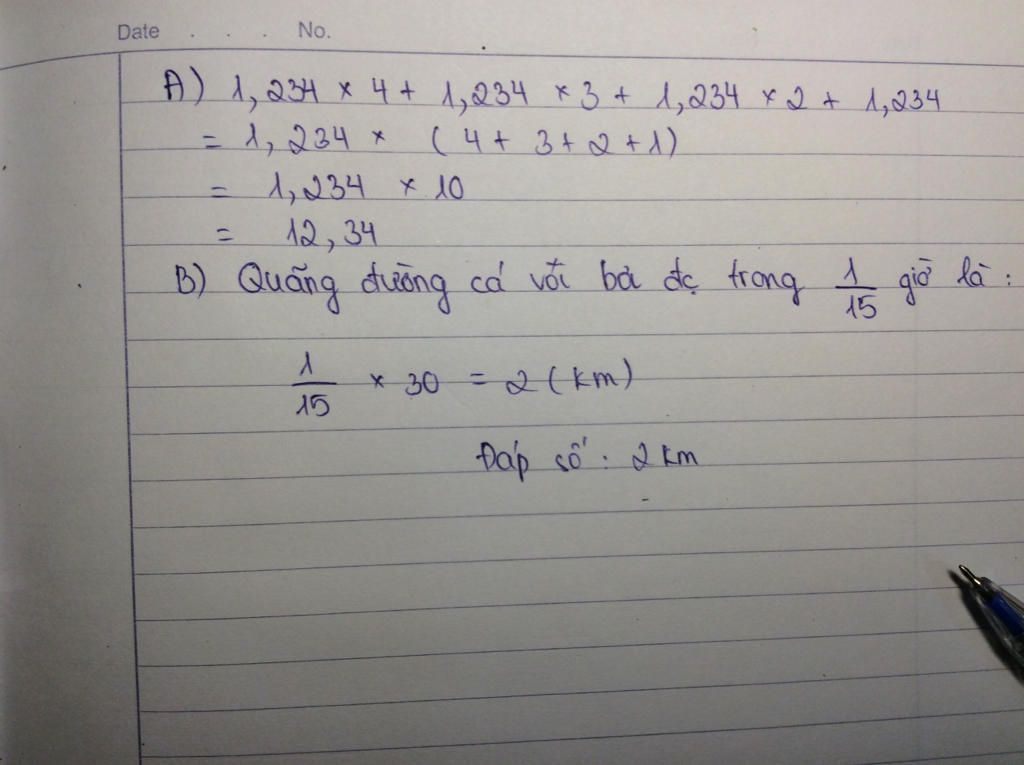 Date . . . No.
A) 1,234 × 4 + 1,234 × 3 + 1,234 × 2 + 1,234
= 1,234 × (4 + 3 + 2 + 1)
= 1,234 × 10
= 12,34
B) Quãng đường cá voi bơi đc trong 1/15 giờ là :
1/15 × 30 = 2 (km)
Đáp số : 2 km